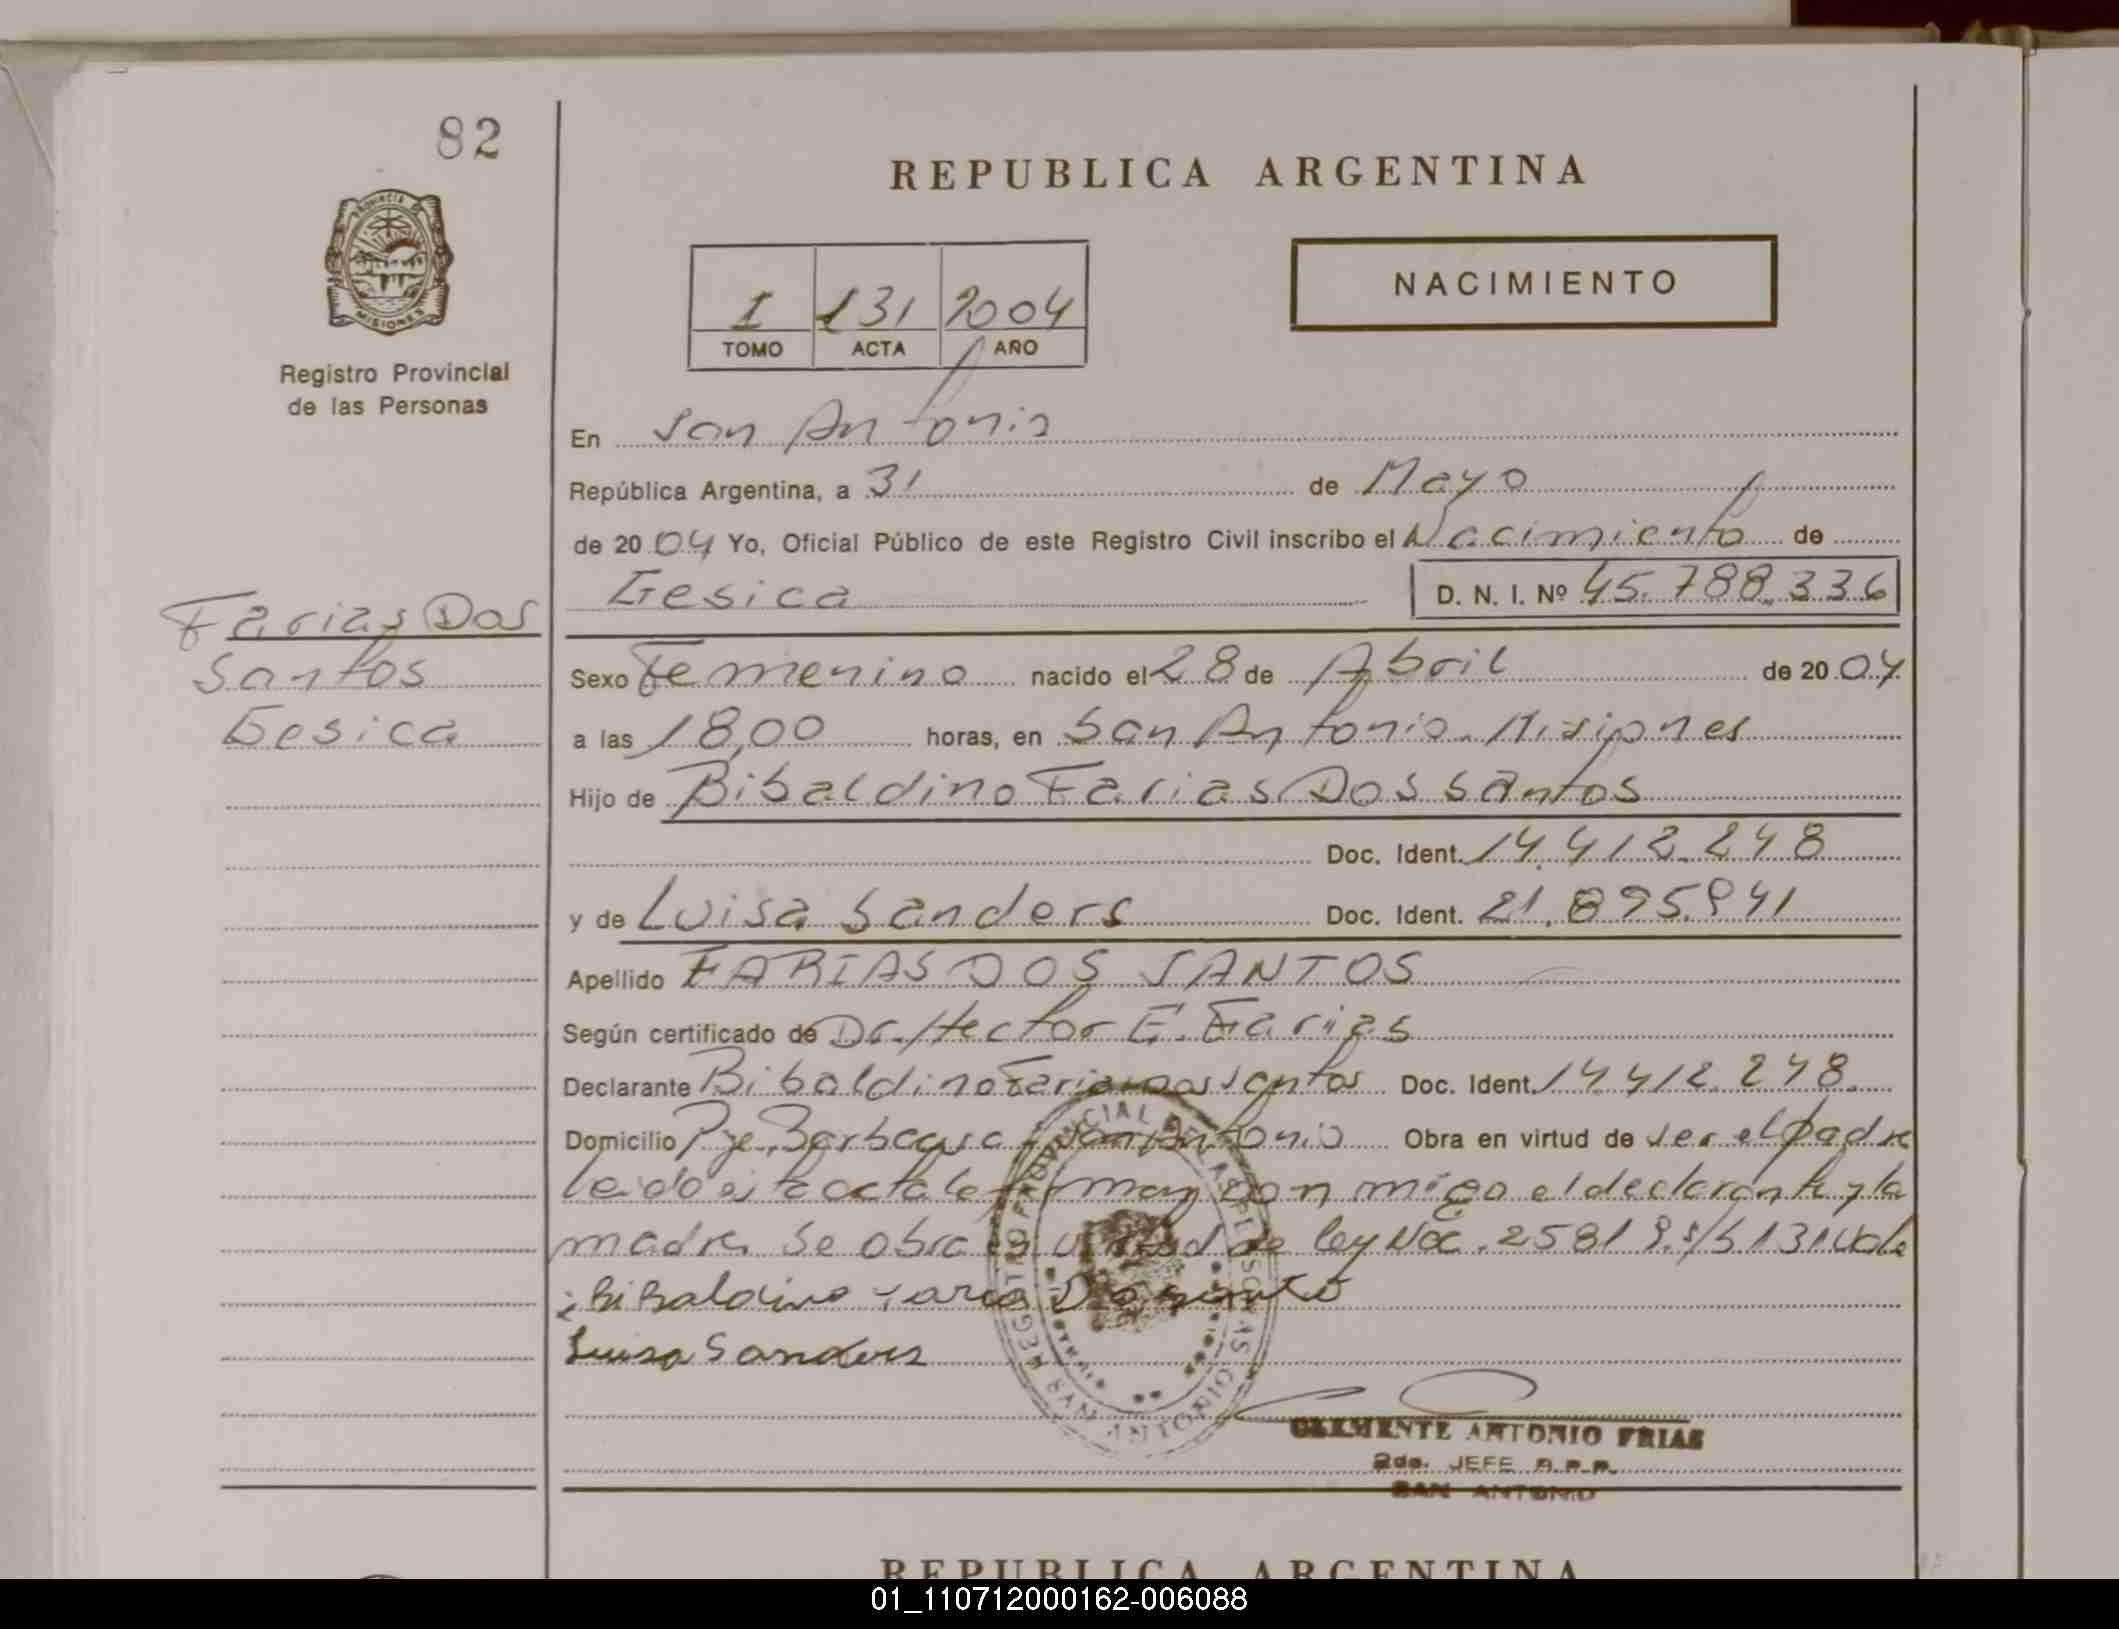 82
REPUBLICA ARGENTINA
PROVINCIA DE
MISIONES
Registro Provincial
de las Personas
NACIMIENTO
I 131 2004
TOMO ACTA AÑO
En San Antonio
República Argentina, a 31 de Mayo
de 2004 Yo, Oficial Público de este Registro Civil inscribo el Nacimiento de
Gesica D. N. I. Nº 45.788.336
Farias Dos
Santos
Gesica
Sexo Femenino nacido el 28 de Abril de 2004
a las 18,00 horas, en San Antonio. Misiones
Hijo de Bibaldino Farias Dos Santos
Doc. Ident. 14.412.248
y de Luisa Sanders Doc. Ident. 21.895.941
Apellido FARIAS DOS SANTOS
Según certificado de Dr. Hector E. Farias
Declarante Bibaldino Farias Dos Santos Doc. Ident. 14.412.248.
Domicilio San Antonio Obra en virtud de ser el padre
leido esta acta la firman con migo el declarante y la
madre Se obra en virtud de ley Nac. 25819. S/b 131 Vale
Bibaldino Farias Do Santo
Luisa Sanders
REGISTRO PROVINCIAL DE LAS PERSONAS
SAN ANTONIO
CLEMENTE ANTONIO FRIAS
2do. JEFE R.P.P.
SAN ANTONIO
REPUBLICA ARGENTINA
01_110712000162-006088